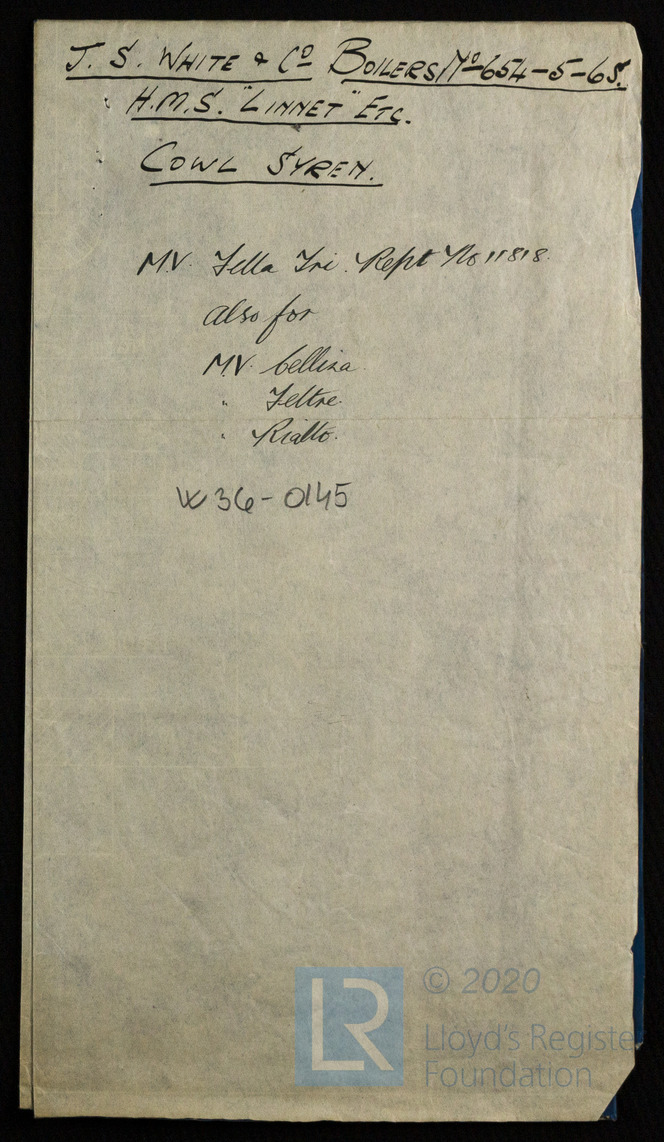 J. S. WHITE & Cº BOILERS Nº 654-5-65.
H.M.S. "LINNET" ETC.
COWL SYREN.
MV. Fella Tri. Rept No 11818.
also for
MV. Cellina.
" Feltre.
" Rialto.
W36-0145
LR
© 2020
Lloyd's Registe
Foundation